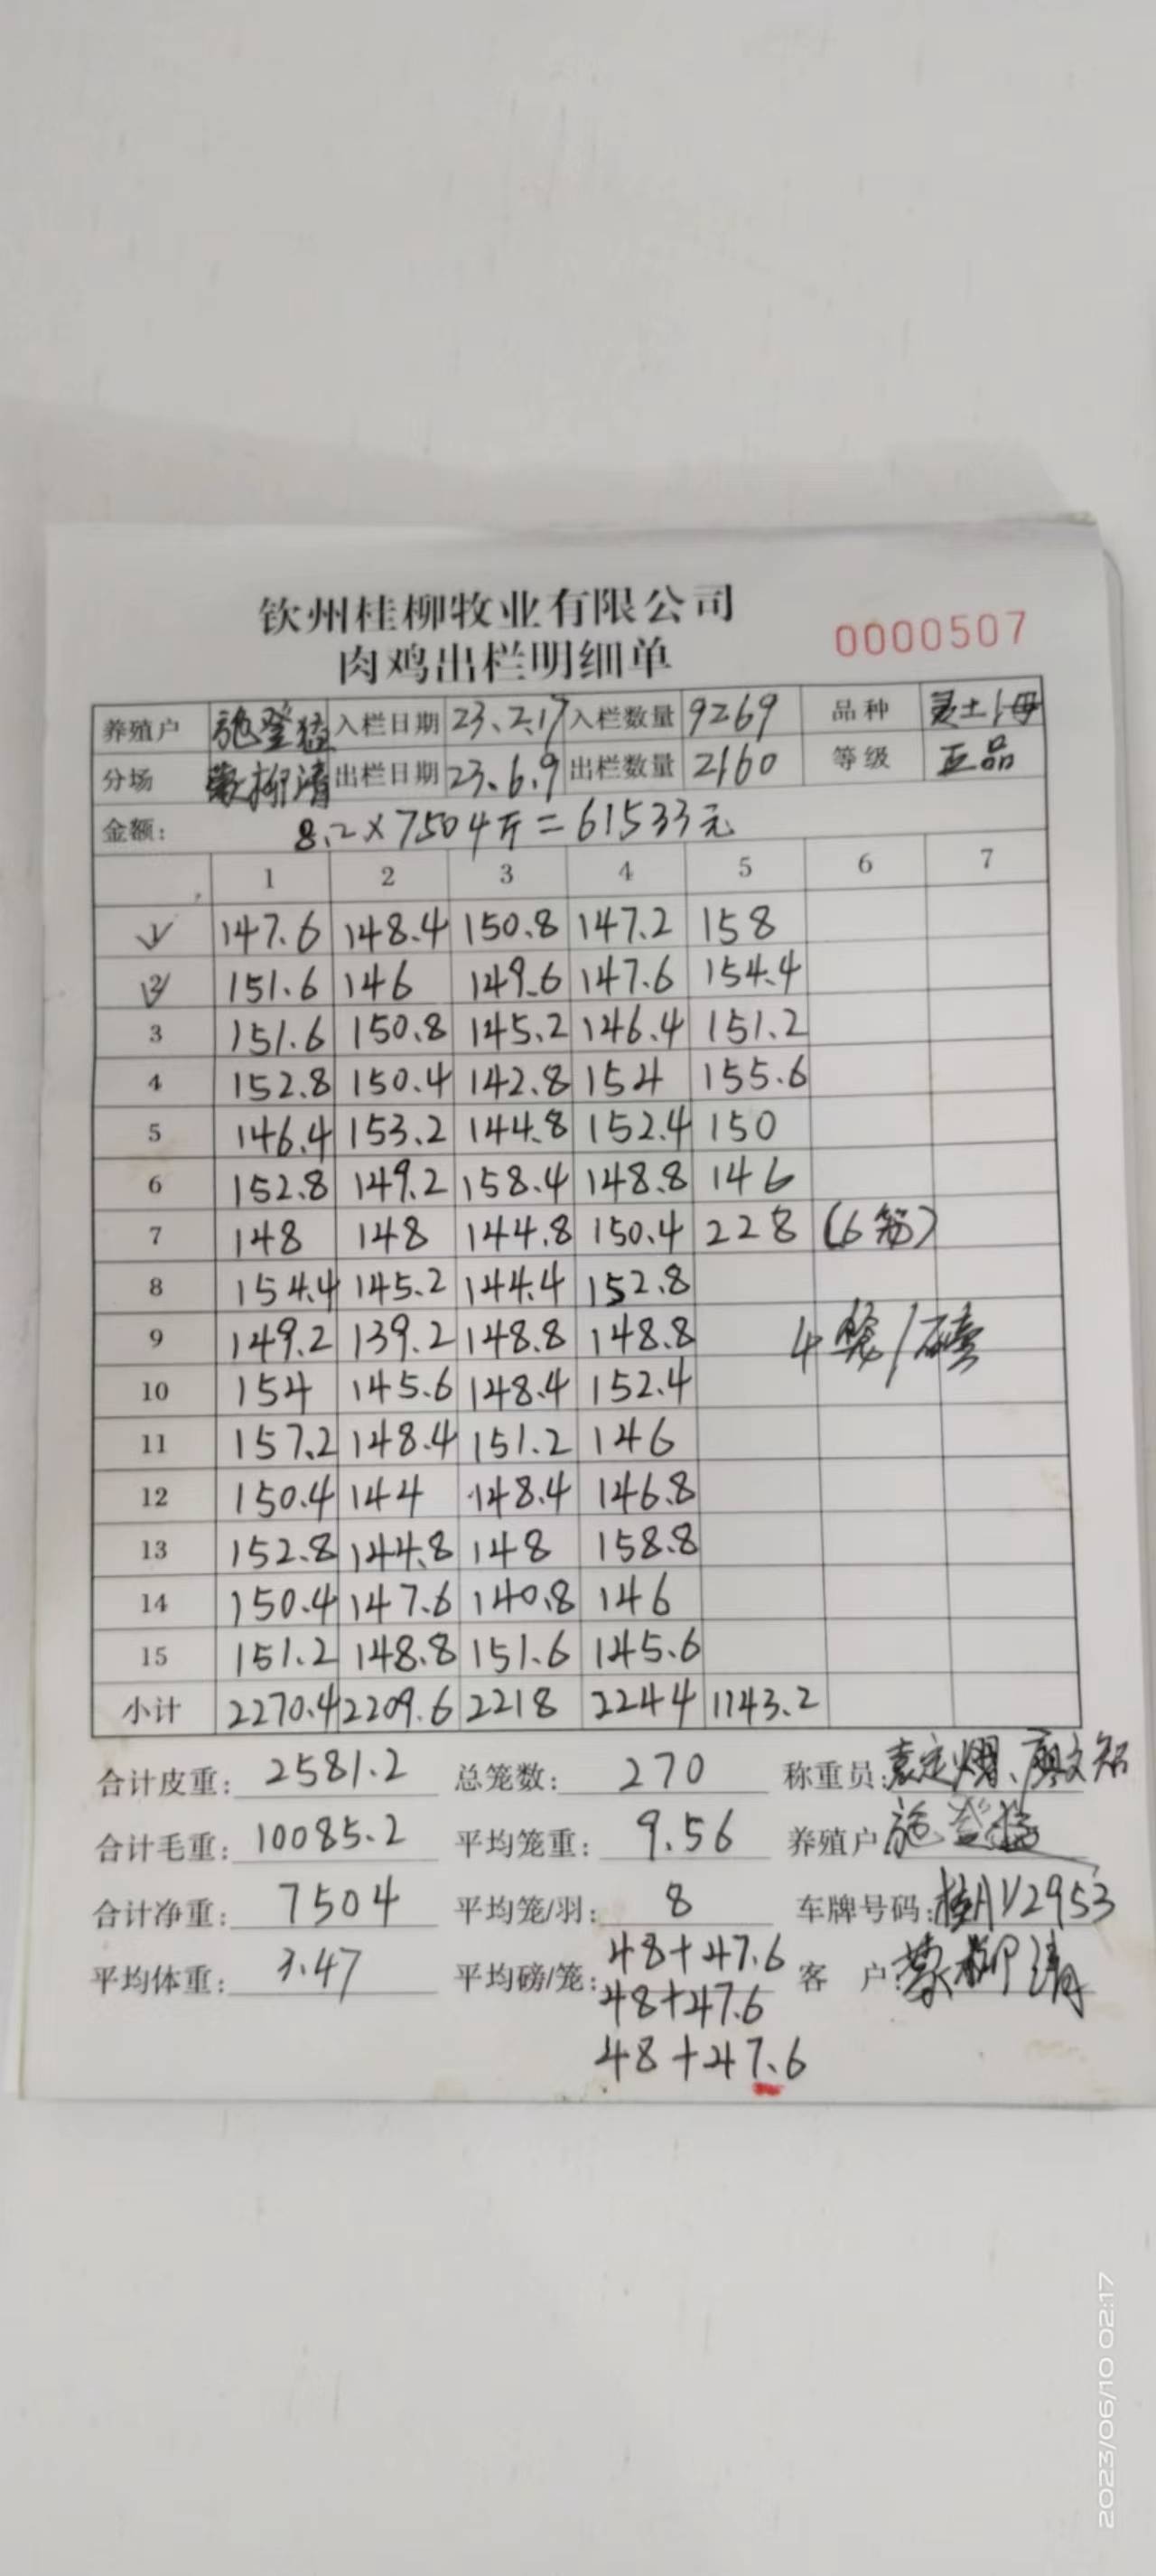 钦州桂柳牧业有限公司
肉鸡出栏明细单
0000507
养殖户 施登猛 入栏日期 23.2.17 入栏数量 9269 品种 灵土1母
分场 蒙柳清 出栏日期 23.6.9 出栏数量 2160 等级 正品
金额: 8.2×7504斤=61533元
1 2 3 4 5 6 7
1 147.6 148.4 150.8 147.2 158
2 151.6 146 149.6 147.6 154.4
3 151.6 150.8 145.2 146.4 151.2
4 152.8 150.4 142.8 154 155.6
5 146.4 153.2 144.8 152.4 150
6 152.8 149.2 158.4 148.8 146
7 148 148 144.8 150.4 228 (6笼)
8 154.4 145.2 144.4 152.8
9 149.2 139.2 148.8 148.8 4笼/磅
10 154 145.6 148.4 152.4
11 157.2 148.4 151.2 146
12 150.4 144 148.4 146.8
13 152.8 144.8 148 158.8
14 150.4 147.6 140.8 146
15 151.2 148.8 151.6 145.6
小计 2270.4 2209.6 2218 2244 1143.2
合计皮重: 2581.2 总笼数: 270 称重员:
合计毛重: 10085.2 平均笼重: 9.56 养殖户 施登猛
合计净重: 7504 平均笼/羽: 8 车牌号码: 桂AV2953
平均体重: 3.47 平均磅/笼: 48+47.6 客 户: 蒙柳清
48+47.6
48+47.6
2023/06/10 02:17